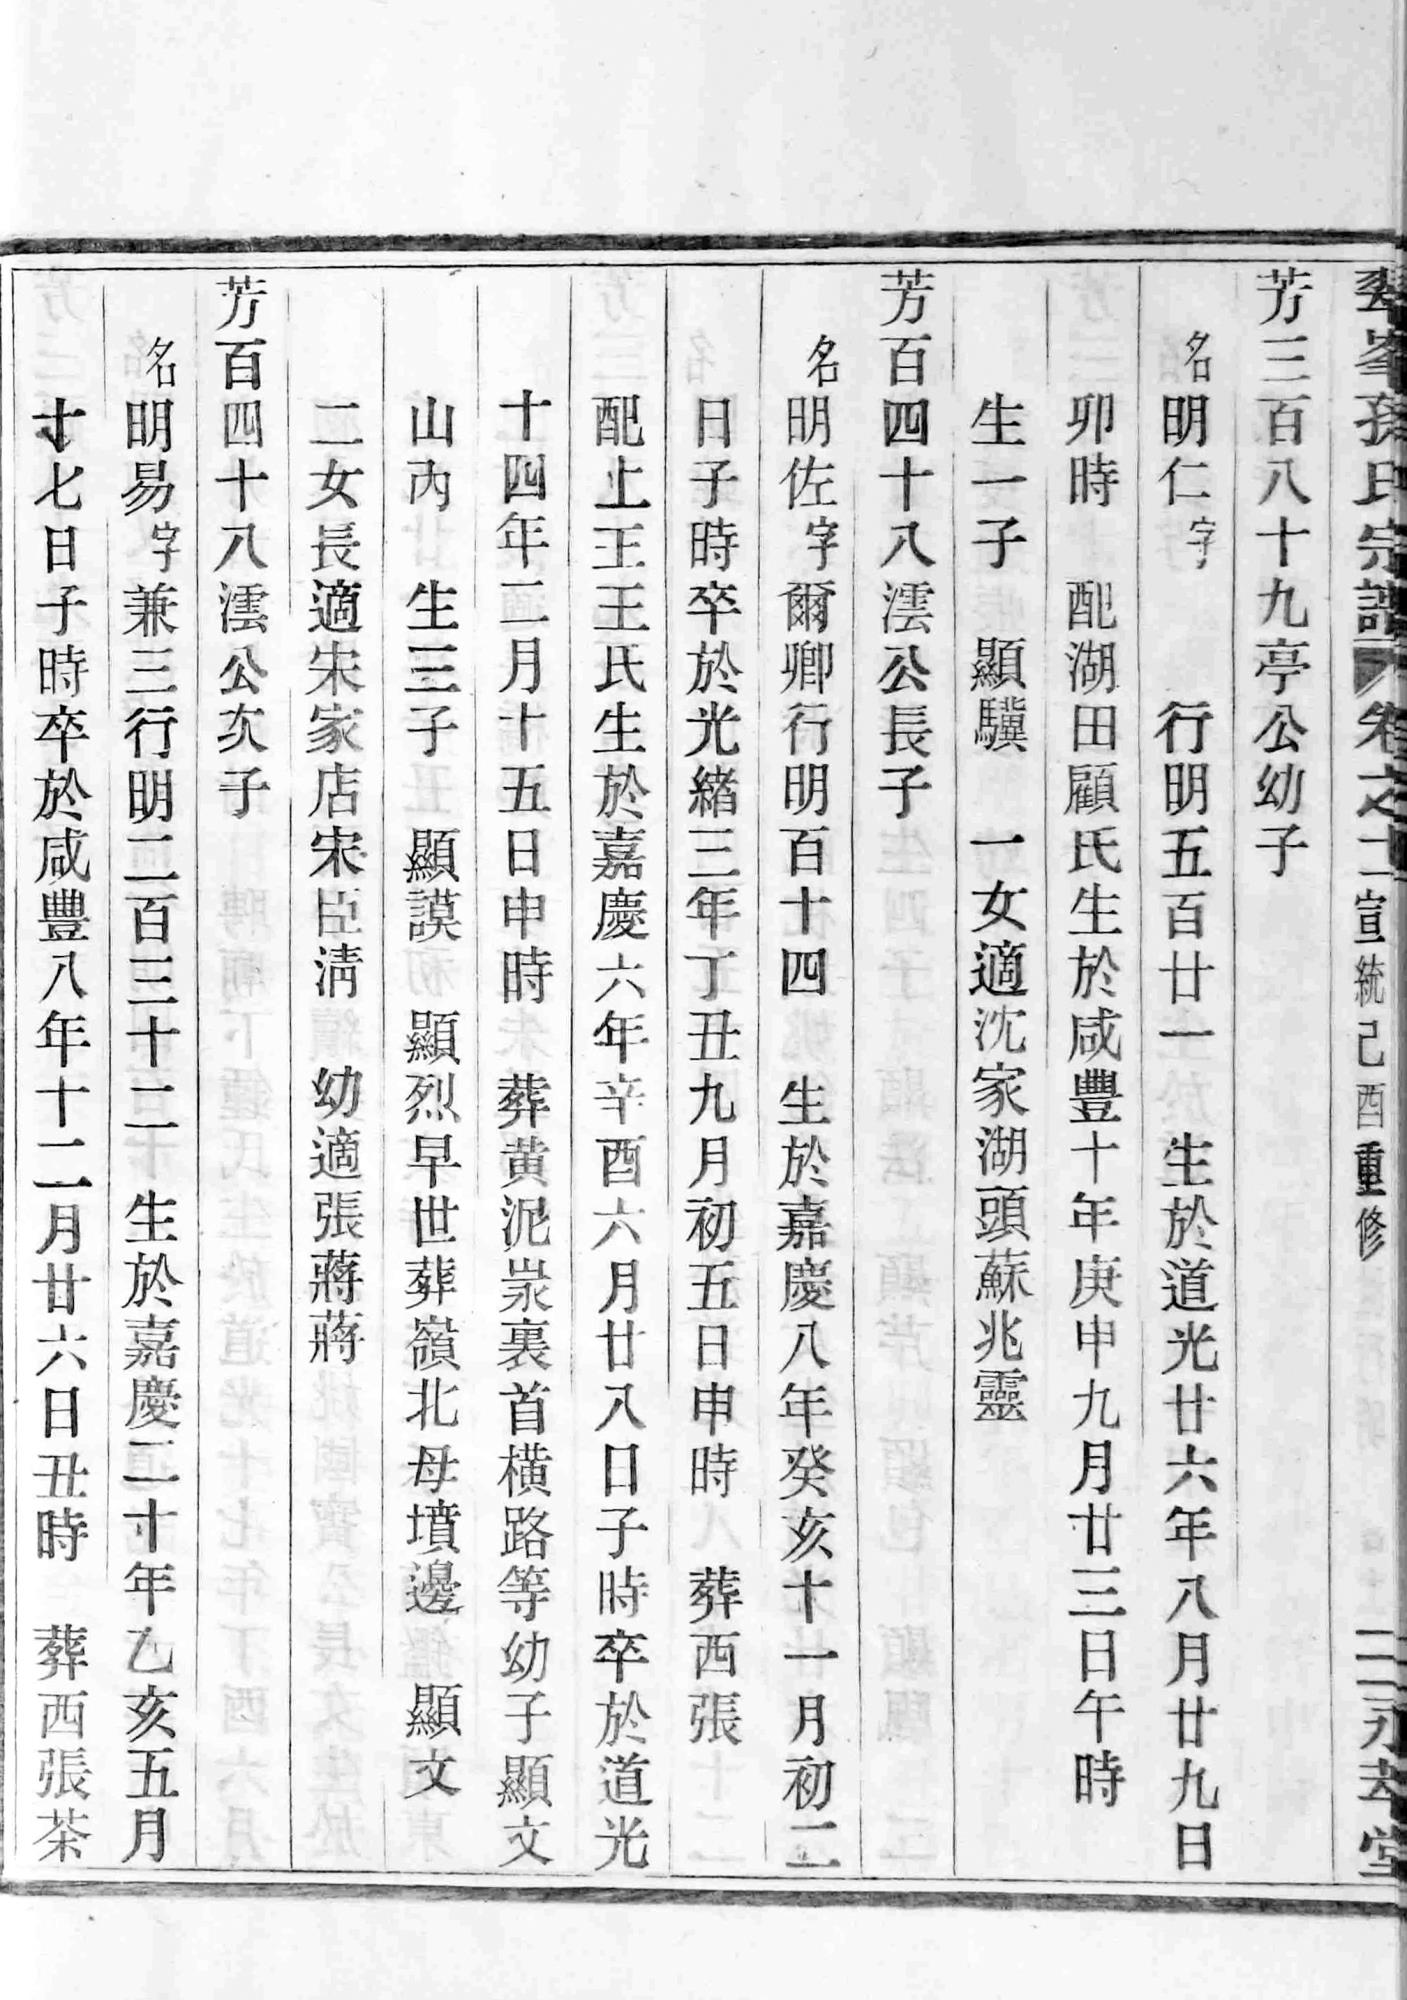 翠峯孫氏宗譜 卷之十二 宣統己酉重修 二 永孝堂
芳三百八十九亭公幼子
名明仁字 行明五百廿一 生於道光廿六年八月廿九日
卯時 配湖田顧氏生於咸豐十年庚申九月廿三日午時
生一子 顯驥 一女適沈家湖頭蘇兆靈
芳百四十八澐公長子
名明佐字爾卿行明百十四 生於嘉慶八年癸亥十一月初二
日子時卒於光緒三年丁丑九月初五日申時 葬西張
配上王王氏生於嘉慶六年辛酉六月廿八日子時卒於道光
十四年二月十五日申時 葬黄泥㟁裏首橫路等幼子顯文
山內 生三子 顯謨 顯烈早世葬嶺北母墳邊 顯文
二女長適宋家店宋臣淸 幼適張蔣蔣
芳百四十八澐公次子
名明易字兼三行明二百三十二 生於嘉慶二十年乙亥五月
十七日子時卒於咸豐八年十二月廿六日丑時 葬西張茶